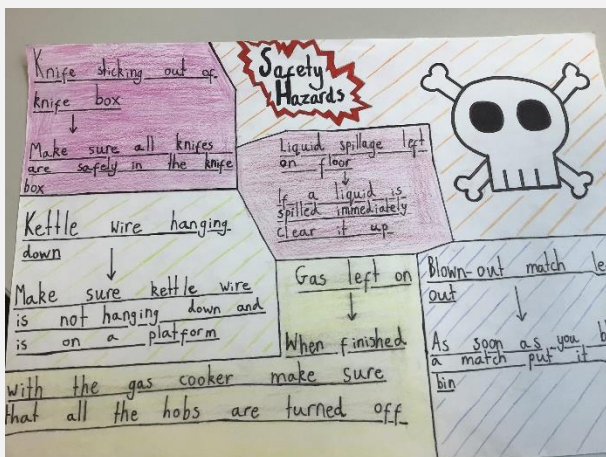 Safety
Hazards
Knife sticking out of
knife box
Make sure all knifes
are safely in the knife
box
Liquid spillage left
on floor
If a liquid is
spilled immediately
clear it up
Kettle wire hanging
down
Make sure kettle wire
is not hanging down and
is on a platform
Gas left on
When finished
with the gas cooker make sure
that all the hobs are turned off
Blown-out match
out
As soon as you
a match put it
bin